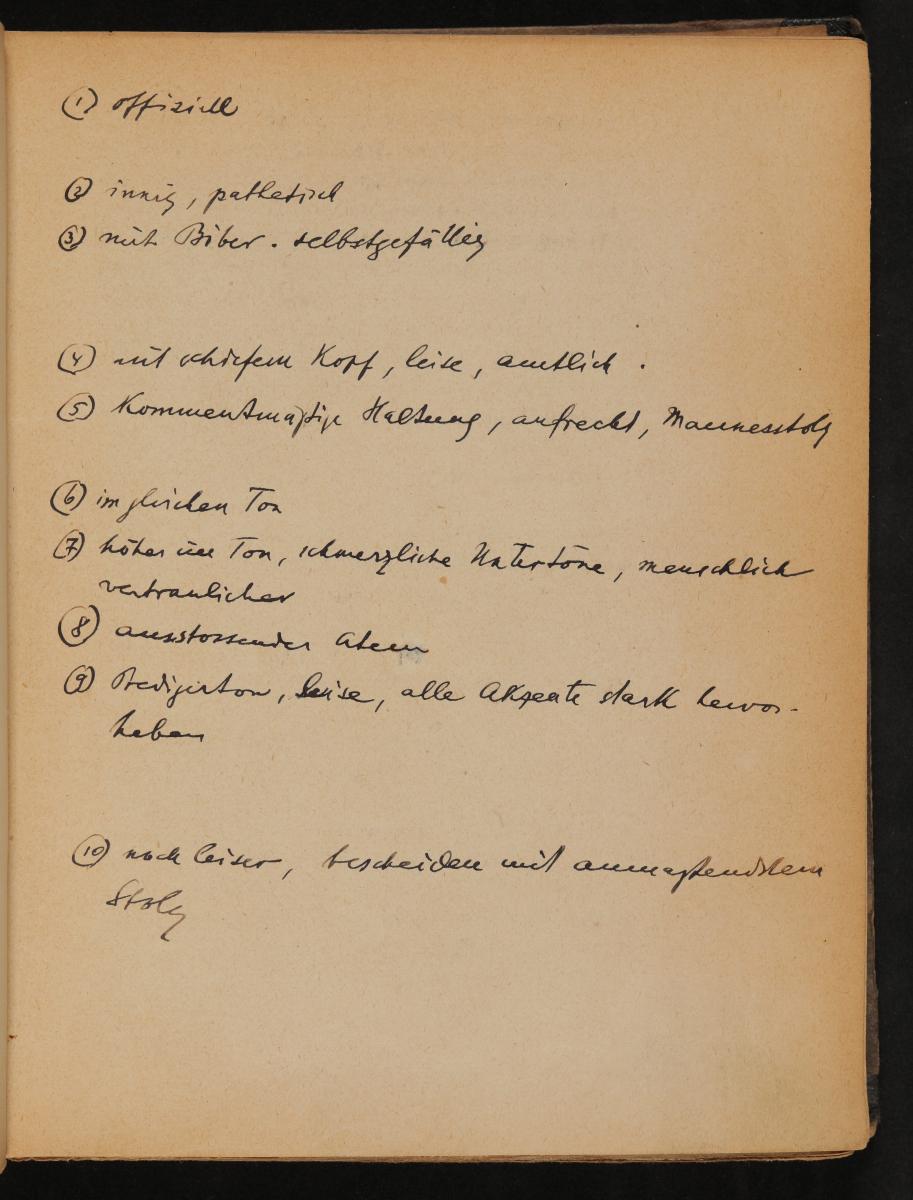 ① offiziell
② innig, pathetisch
③ mit Biber. selbstgefällig
④ mit schiefem Kopf, leise, amtlich.
⑤ Kommentmäßige Haltung, aufrecht, Mannesstolz
⑥ im gleichen Ton
⑦ höher im Ton, schmerzliche Untertöne, menschlich
vertraulicher
⑧ ausstossender Atem
⑨ Predigerton, leise, alle Akzente stark hervor-
heben
⑩ noch leiser, bescheiden mit anmaßendstem
Stolz